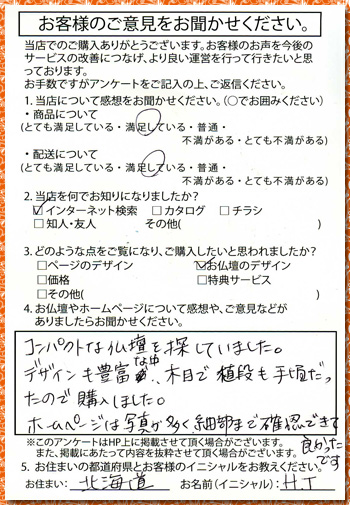 お客様のご意見をお聞かせください。
当店でのご購入ありがとうございます。お客様のお声を今後の
サービスの改善につなげ、より良い運営を行って行きたいと思
っております。
お手数ですがアンケートをご記入の上、ご返信ください。
1. 当店について感想をお聞かせください。(○でお囲みください)
・商品について
(とても満足している・満足している・普通・
不満がある・とても不満がある)
・配送について
(とても満足している・満足している・普通・
不満がある・とても不満がある)
2. 当店を何でお知りになりましたか?
☑インターネット検索 □カタログ □チラシ
□知人・友人 その他( )
3. どのような点をご覧になり、ご購入したいと思われましたか?
□ページのデザイン ☑お仏壇のデザイン
□価格 □特典サービス
□その他( )
4. お仏壇やホームページについて感想や、ご意見などが
ありましたらお聞かせください。
コンパクトな仏壇を探していました。
デザインも豊富な中、木目で値段も手頃だっ
たので購入しました。
ホームページは写真が多く細部まで確認できて
良かった
です
※このアンケートはHP上に掲載させて頂く場合がございます。
また、掲載にあたって内容を抜粋させて頂く場合がございます。
5. お住まいの都道府県とお客様のイニシャルをお教えください。
お住まい: 北海道 お名前(イニシャル): H.T